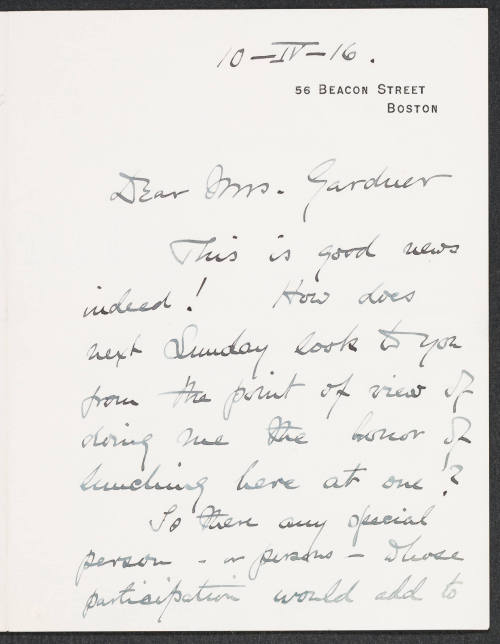 10-IV-16.
56 Beacon Street
Boston
Dear Mrs. Gardner
This is good news
indeed! How does
next Sunday look to you
from the point of view of
doing me the honor of
lunching here at one?
Is there any special
person - or persons - whose
participation would add to